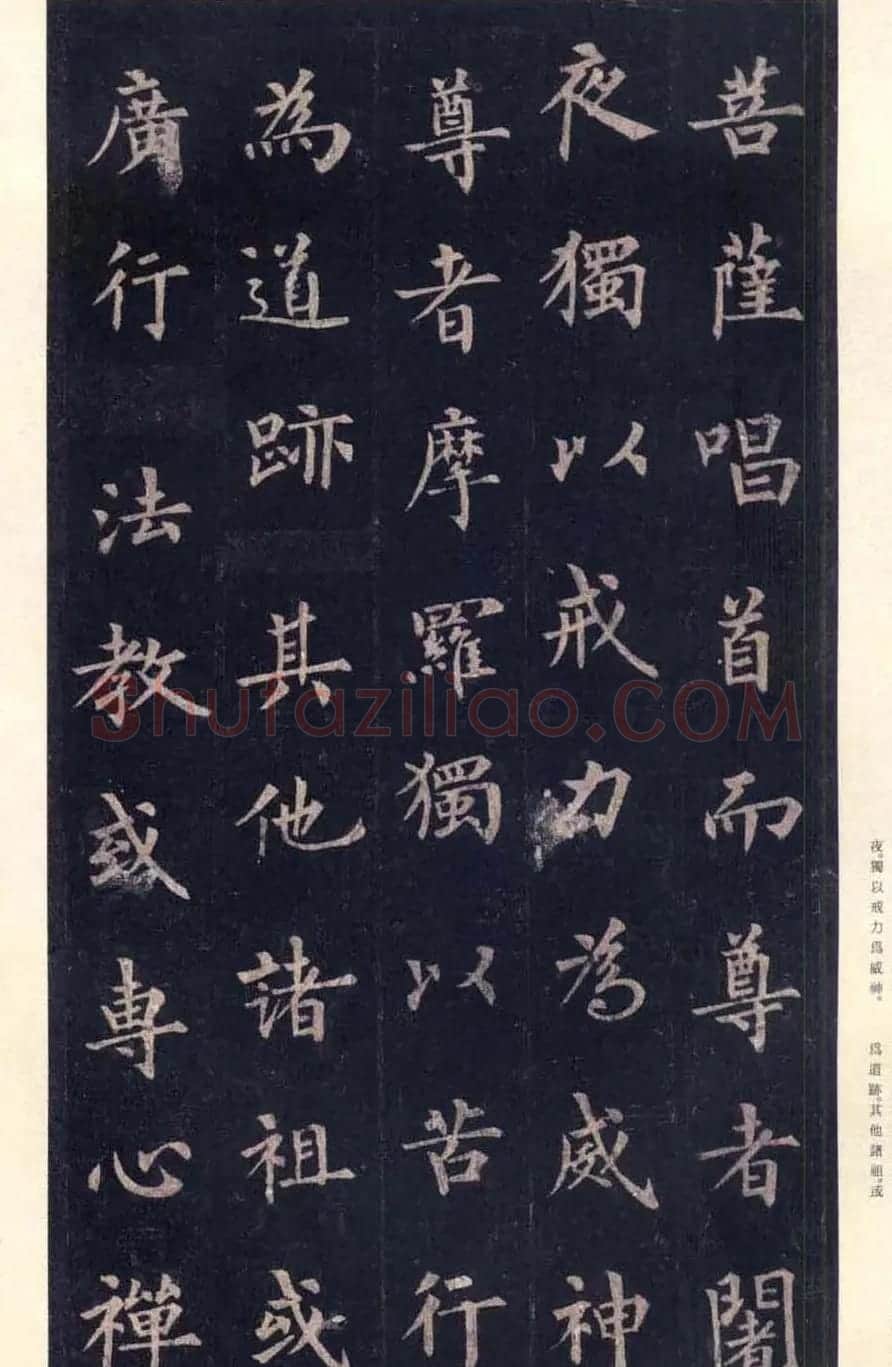 菩薩唱首而尊者闍
夜獨以戒力為威神
尊者摩羅獨以苦行
為道跡其他諸祖或
廣行法教或專心禪
夜。獨以戒力爲威神。
爲道跡。其他諸祖。或
Shufaziliao.COM